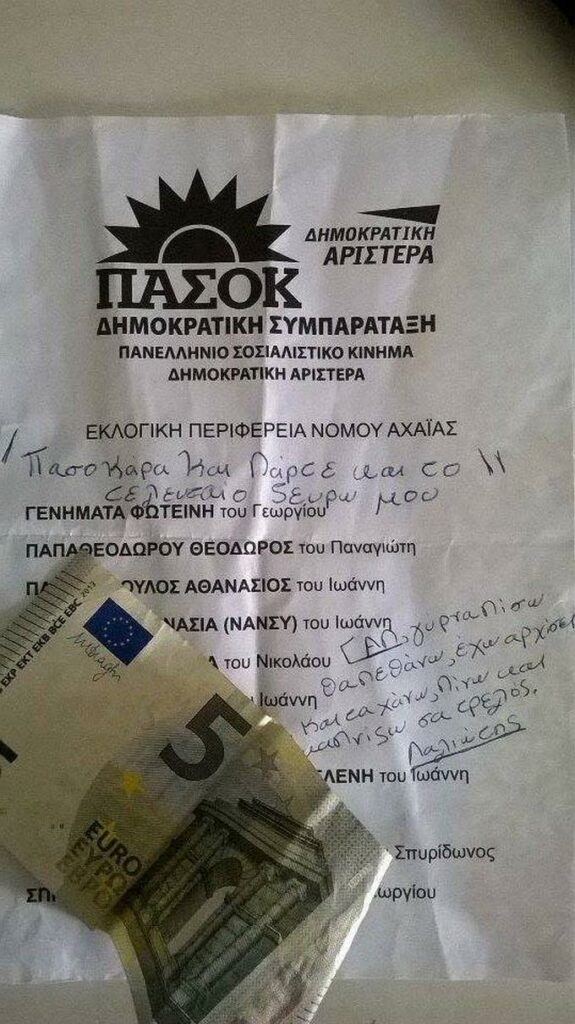 ΔΗΜΟΚΡΑΤΙΚΗ
ΑΡΙΣΤΕΡΑ
ΠΑΣΟΚ
ΔΗΜΟΚΡΑΤΙΚΗ ΣΥΜΠΑΡΑΤΑΞΗ
ΠΑΝΕΛΛΗΝΙΟ ΣΟΣΙΑΛΙΣΤΙΚΟ ΚΙΝΗΜΑ
ΔΗΜΟΚΡΑΤΙΚΗ ΑΡΙΣΤΕΡΑ
ΕΚΛΟΓΙΚΗ ΠΕΡΙΦΕΡΕΙΑ ΝΟΜΟΥ ΑΧΑΪΑΣ
Πασοκάρα Και Πάρσε και το
τελευταίο 5ευρω μου
ΓΕΝΗΜΑΤΑ ΦΩΤΕΙΝΗ του Γεωργίου
ΠΑΠΑΘΕΟΔΩΡΟΥ ΘΕΟΔΩΡΟΣ του Παναγιώτη
ΠΑ ΟΥΛΟΣ ΑΘΑΝΑΣΙΟΣ του Ιωάννη
ΝΑΣΙΑ (ΝΑΝΣΥ) του Ιωάννη
Α του Νικολάου
Ιωάννη
ΑΠ. γύρνα Πίσω
θα πεθάνω, έχω αρχίσει
και τα χάνω, Πίνω και
καπνίζω σα τρελός.
Λαλιώτης
ΛΕΝΗ του Ιωάννη
Σπυρίδωνος
ΣΠ ωργίου
EXP EKT EKB BCE EBC 2013
5
EURO
ΕΥΡΩ
ЕВРО